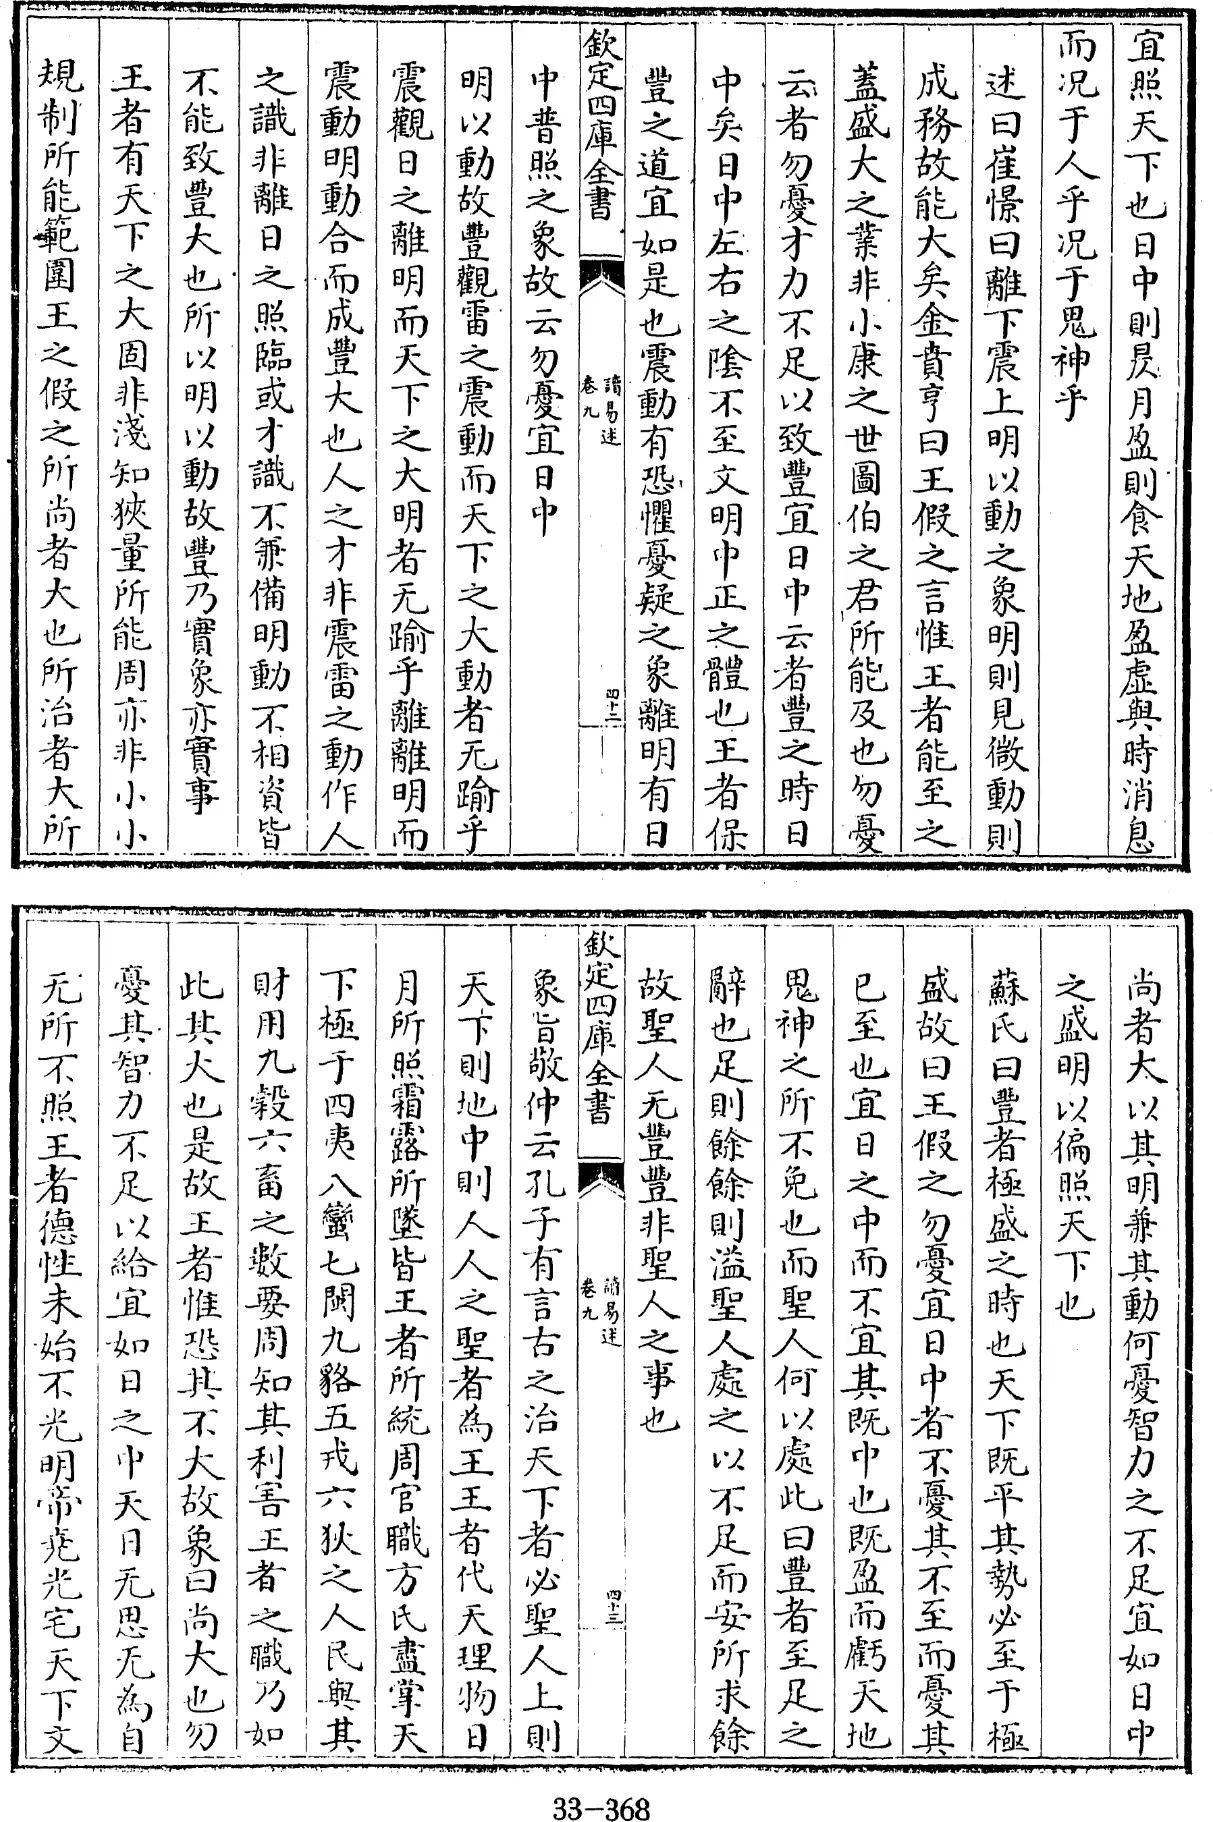 宜照天下也日中則昃月盈則食天地盈虛與時消息
而况于人乎况于鬼神乎
述曰崔憬曰離下震上明以動之象明則見微動則
成務故能大矣金賁亨曰王假之言惟王者能至之
蓋盛大之業非小康之世圖伯之君所能及也勿憂
云者勿憂才力不足以致豐宜日中云者豐之時日
中矣日中左右之陰不至文明中正之體也王者保
豐之道宜如是也震動有恐懼憂疑之象離明有日
欽定四庫全書
讀易述
卷九
四十二
中普照之象故云勿憂宜日中
明以動故豐觀雷之震動而天下之大動者无踰乎
震觀日之離明而天下之大明者无踰乎離離明而
震動明動合而成豐大也人之才非震雷之動作人
之識非離日之照臨或才識不兼備明動不相資皆
不能致豐大也所以明以動故豐乃實象亦實事
王者有天下之大固非淺知狹量所能周亦非小小
規制所能範圍王之假之所尚者大也所治者大所
尚者大以其明兼其動何憂智力之不足宜如日中
之盛明以徧照天下也
蘇氏曰豐者極盛之時也天下既平其勢必至于極
盛故曰王假之勿憂宜日中者不憂其不至而憂其
已至也宜日之中而不宜其既中也既盈而虧天地
鬼神之所不免也而聖人何以處此曰豐者至足之
辭也足則餘餘則溢聖人處之以不足而安所求餘
故聖人无豐豐非聖人之事也
欽定四庫全書
讀易述
卷九
四十三
象旨敬仲云孔子有言古之治天下者必聖人上則
天下則地中則人人之聖者為王王者代天理物日
月所照霜露所墜皆王者所統周官職方氏盡掌天
下極于四夷八蠻七閩九貉五戎六狄之人民與其
財用九穀六畜之數要周知其利害王者之職乃如
此其大也是故王者惟恐其不大故彖曰尚大也勿
憂其智力不足以給宜如日之中天日无思无為自
无所不照王者德性未始不光明帝堯光宅天下文
33-368